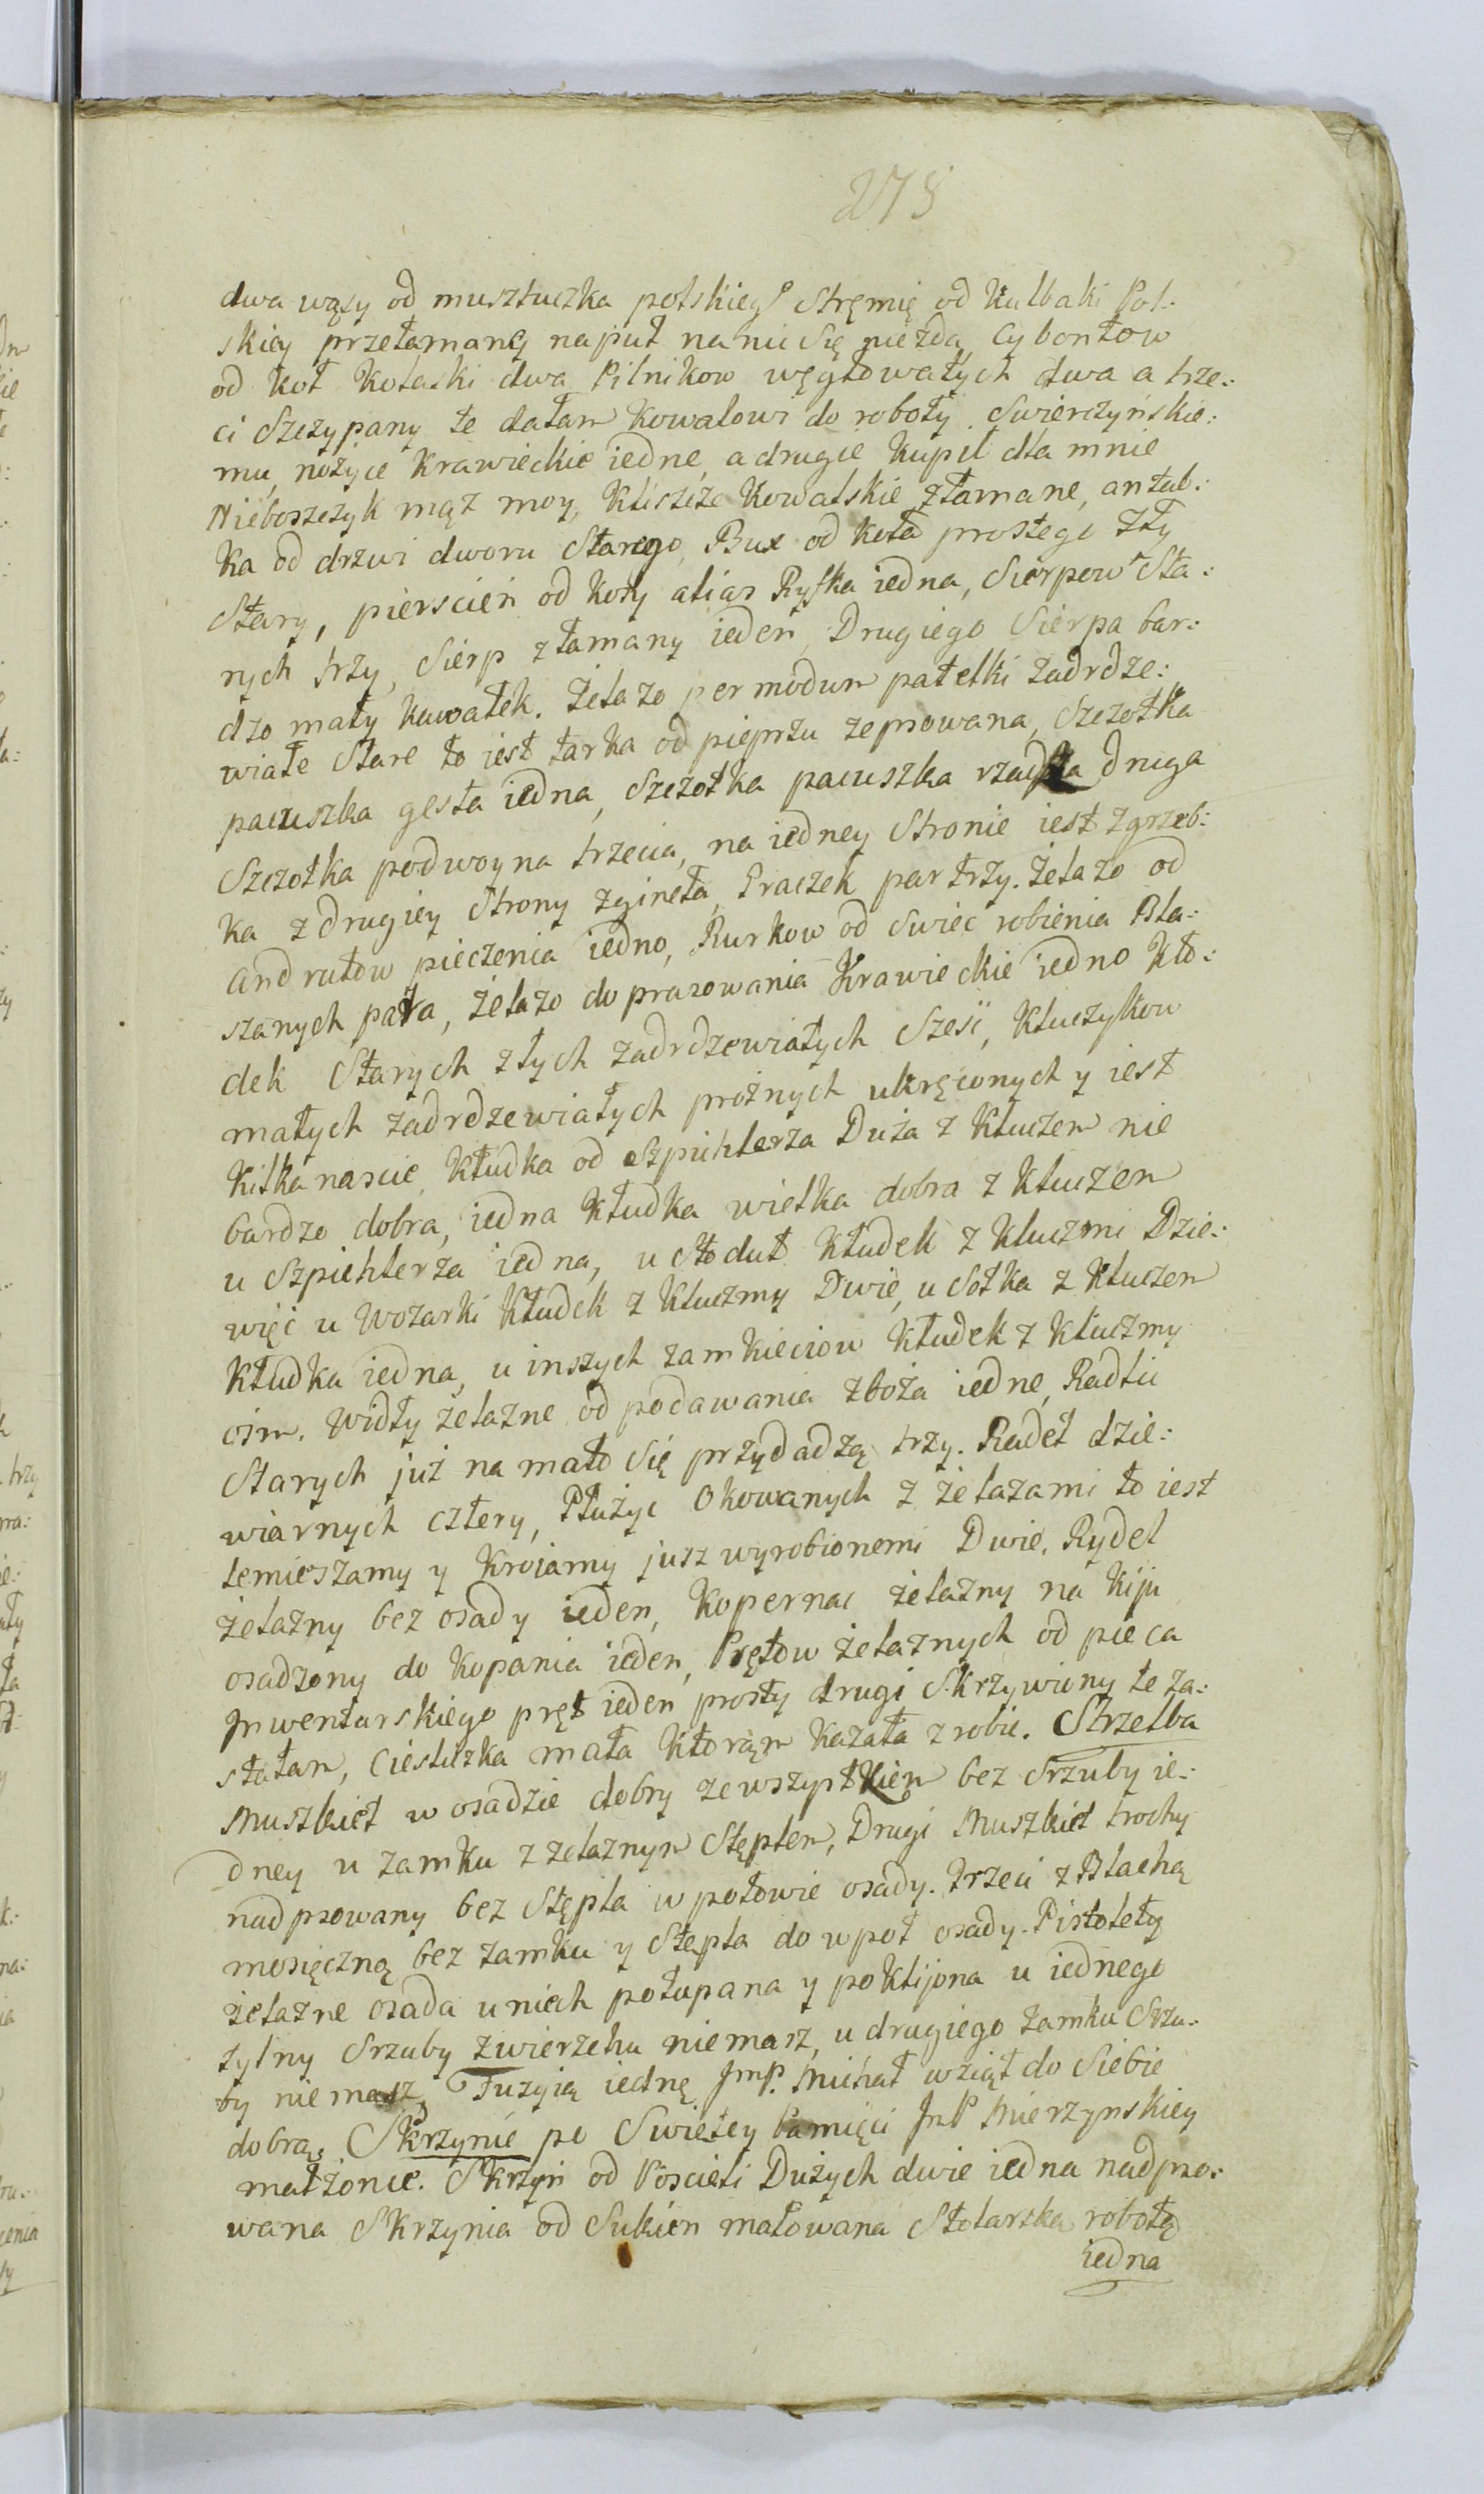 275
dwa wąsy od musztuczka polskieg° Stręmię od Kulbaki Pol:
skiey przełamane naput na nic Się niezda, Cybontow
od koł Kolaski dwa Pilnikow węgłowatych dwa a trze:
ci Szczypany te dałam Kowalowi do roboty Swierczyńskie:
mu, nożyce Krawieckie iedne, a drugie Kupił dla mnie
Nieboszczyk mąż moy, Kliszcze Kowalskie złamane, antab:
ka od drzwi dworu Starego, Bux od koła prostego zły
Stary, pierscień od Kosy alias Ryfka iedna, Sierpow Sta:
rych trzy, Sierp złamany ieden, Drugiego Sierpa bar:
dzo mały kawałek. Żelazo per modum patelki zadrdze:
wiałe Stare to iest tarka od pieprzu zepsowana, Szczotka
paczuszka gęsta iedna, Szczotka paczuszka rzadka druga
Szczotka podwoyna trzecia, na iedney Stronie iest Zgrzeb:
ka z drugiey Strony zgineła, Praczek par trzy. Żelazo od
andrutow pieczenia iedno, Rurkow od swiec robienia Bla:
szanych para, żelazo do prasowania Krawieckie iedno Kło:
dek Starych złych zadrdzewiałych Szesć, Kluczykow
małych zadrdzewiałych prożnych ukręconych y iest
Kilkanascie, Kłudka od Szpichlerza Duża z Kluczem nie
bardzo dobra, iedna kłudka wielka dobra z kluczem
u Szpichlerza iedna, u Stoduł Kłudek z kluczmi Dzie:
więć u Wozarki Kłudek z Kluczmy Dwie, u Sołka z kluczem
Kłudka iedna, u inszych zamkieciow kłudek z kluczmy
osm. Widły żelazne od podawania zboża iedne, Radlic
Starych już na mało Się przydadzą trzy. Radeł dzie:
wiarnych cztery, Płużyc Okowanych z żelazami to iest
lemieszamy y Krojamy jusz wyrobionemi Dwie. Rydel
żelazny bez osady ieden, Kopernac żelazny na kiju
osadzony do kopania ieden, Prętow żelaznych od pieca
Jnwentarskiego pręt ieden prosty drugi Skrzywiony te za:
stałam, Ciesliczka mała Ktorąm kazała zrobic. Strzelba
Muszkiet w osadzie dobry ze wszystkiem bez Srzuby ie:
dney u zamku z żelaznym Stęplem, Drugi Muszkiet trochy
nadpsowany bez Stępla w połowie osady. Trzeci z Blachą
mosięczną bez zamku y Stępla do wpoł osady. Pistolety
żelazne osada unich połupana y poklijona u iednego
tylny Srzuby zwierzchu niemasz, u drugiego zamku Srzu:
by niemasz, Fuzyią iednę JmP. Michał wziął do Siebie
dobrą. Skrzynie po Swietey Pamięci JmP Mierzynskiey
małżonce. Skrzyń od Poscieli Dużych dwie iedna nadpso:
wana Skrzynia od Sukien malowana Stolarska robotą
iedna